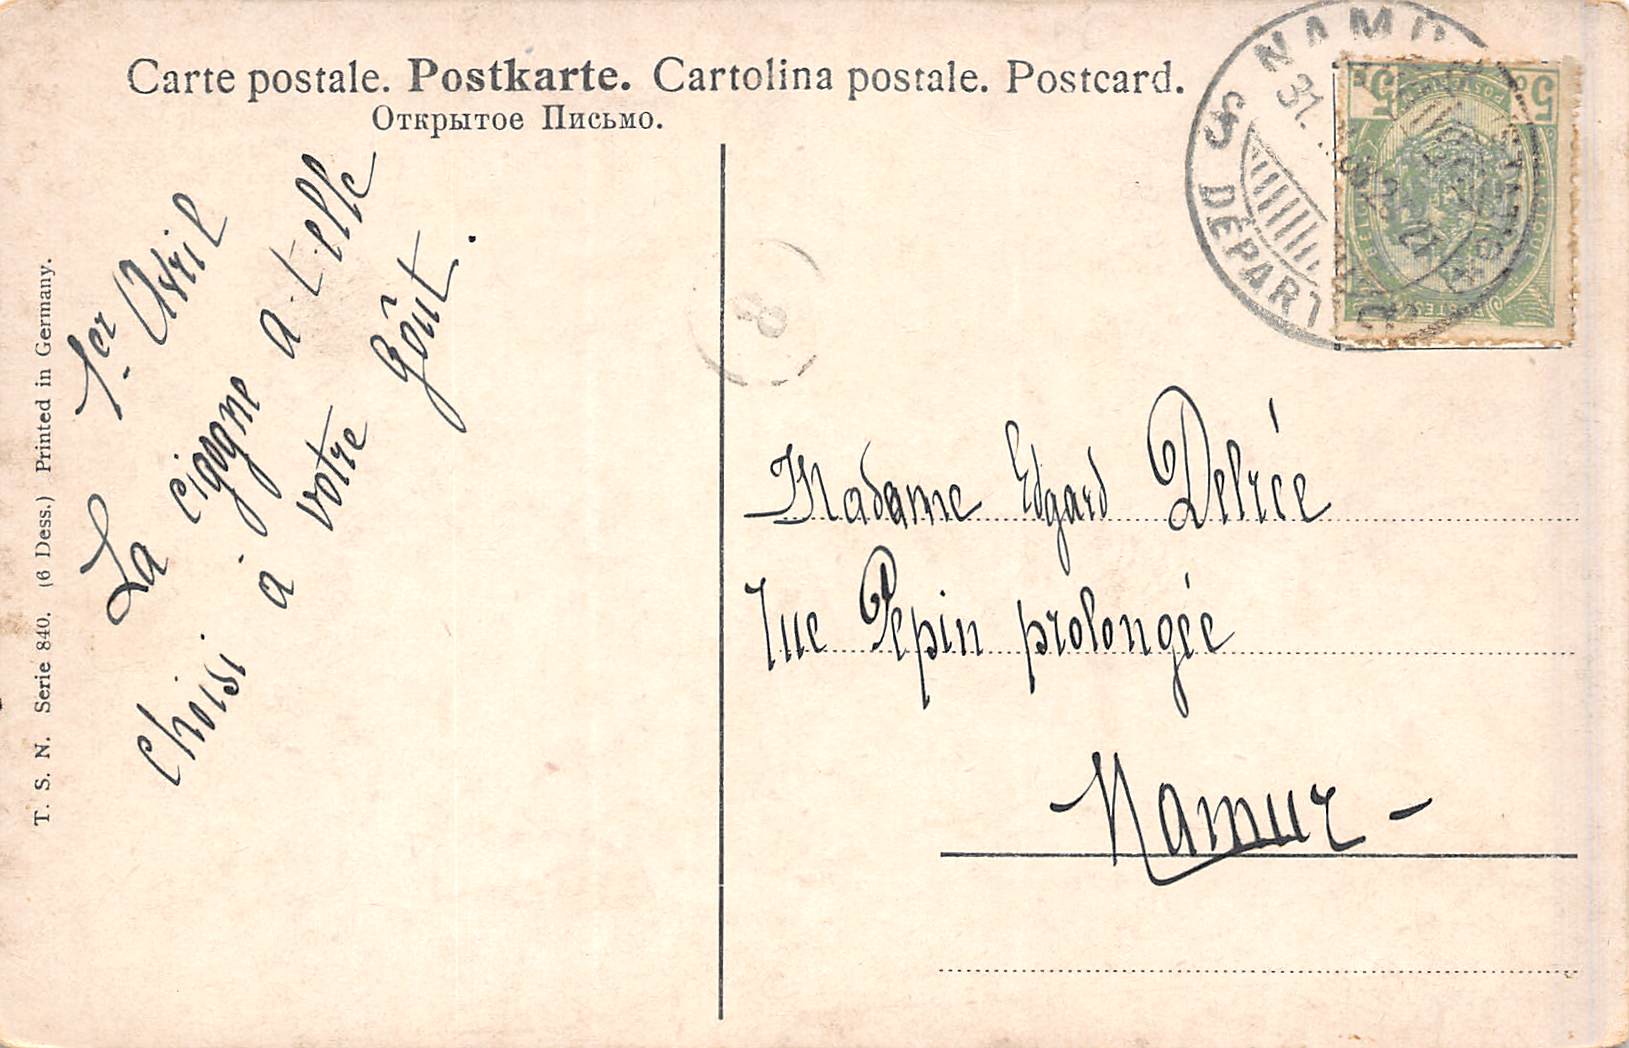 Carte postale. Postkarte. Cartolina postale. Postcard.
Открытое Письмо.
T. S. N. Serie 840. (6 Dess.) Printed in Germany.
1er Avril
La cigogne a-t-elle
choisi à votre goût.
NAMUR
31.
DÉPART
5 5
8
Madame Edgard Delrée
rue Pepin prolongée
- Namur -